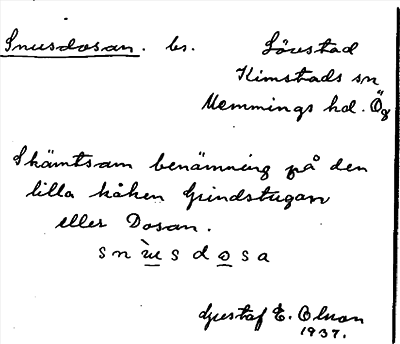 Snusdosan. bs. Lövstad
Kimstads sn
Memmings hd. Ög
Skämtsam benämning på den
lilla kåken Grindstugan
eller Dosan.
snùsdosa
Gustaf E. Olsson
1937.